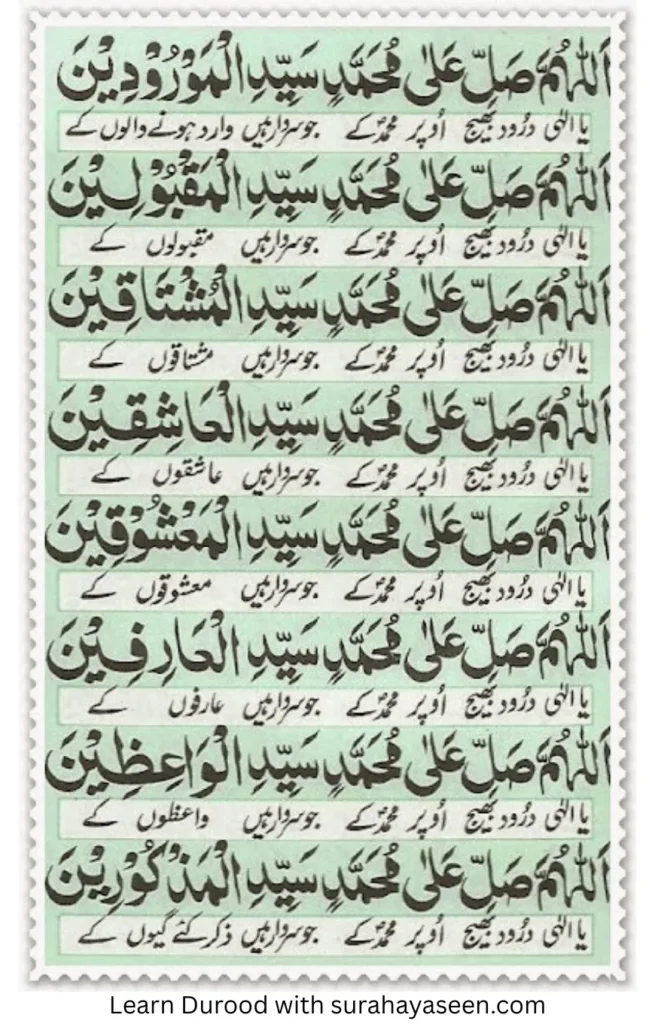 اَللّٰهُمَّ صَلِّ عَلٰى مُحَمَّدٍ سَيِّدِ الْمَوْرُوْدِيْنَ
یا الٰہی درُود بھیج اُوپر محمدؐ کے جو سردار ہیں وارد ہونے والوں کے
اَللّٰهُمَّ صَلِّ عَلٰى مُحَمَّدٍ سَيِّدِ الْمَقْبُوْلِيْنَ
یا الٰہی درُود بھیج اُوپر محمدؐ کے جو سردار ہیں مقبولوں کے
اَللّٰهُمَّ صَلِّ عَلٰى مُحَمَّدٍ سَيِّدِ الْمُشْتَاقِيْنَ
یا الٰہی درُود بھیج اُوپر محمدؐ کے جو سردار ہیں مشتاقوں کے
اَللّٰهُمَّ صَلِّ عَلٰى مُحَمَّدٍ سَيِّدِ الْعَاشِقِيْنَ
یا الٰہی درُود بھیج اُوپر محمدؐ کے جو سردار ہیں عاشقوں کے
اَللّٰهُمَّ صَلِّ عَلٰى مُحَمَّدٍ سَيِّدِ الْمَعْشُوْقِيْنَ
یا الٰہی درُود بھیج اُوپر محمدؐ کے جو سردار ہیں معشوقوں کے
اَللّٰهُمَّ صَلِّ عَلٰى مُحَمَّدٍ سَيِّدِ الْعَارِفِيْنَ
یا الٰہی درُود بھیج اُوپر محمدؐ کے جو سردار ہیں عارفوں کے
اَللّٰهُمَّ صَلِّ عَلٰى مُحَمَّدٍ سَيِّدِ الْوَاعِظِيْنَ
یا الٰہی درُود بھیج اُوپر محمدؐ کے جو سردار ہیں واعظوں کے
اَللّٰهُمَّ صَلِّ عَلٰى مُحَمَّدٍ سَيِّدِ الْمَذْكُوْرِيْنَ
یا الٰہی درُود بھیج اُوپر محمدؐ کے جو سردار ہیں ذکر کئے گیوں کے
Learn Durood with surahayaseen.com